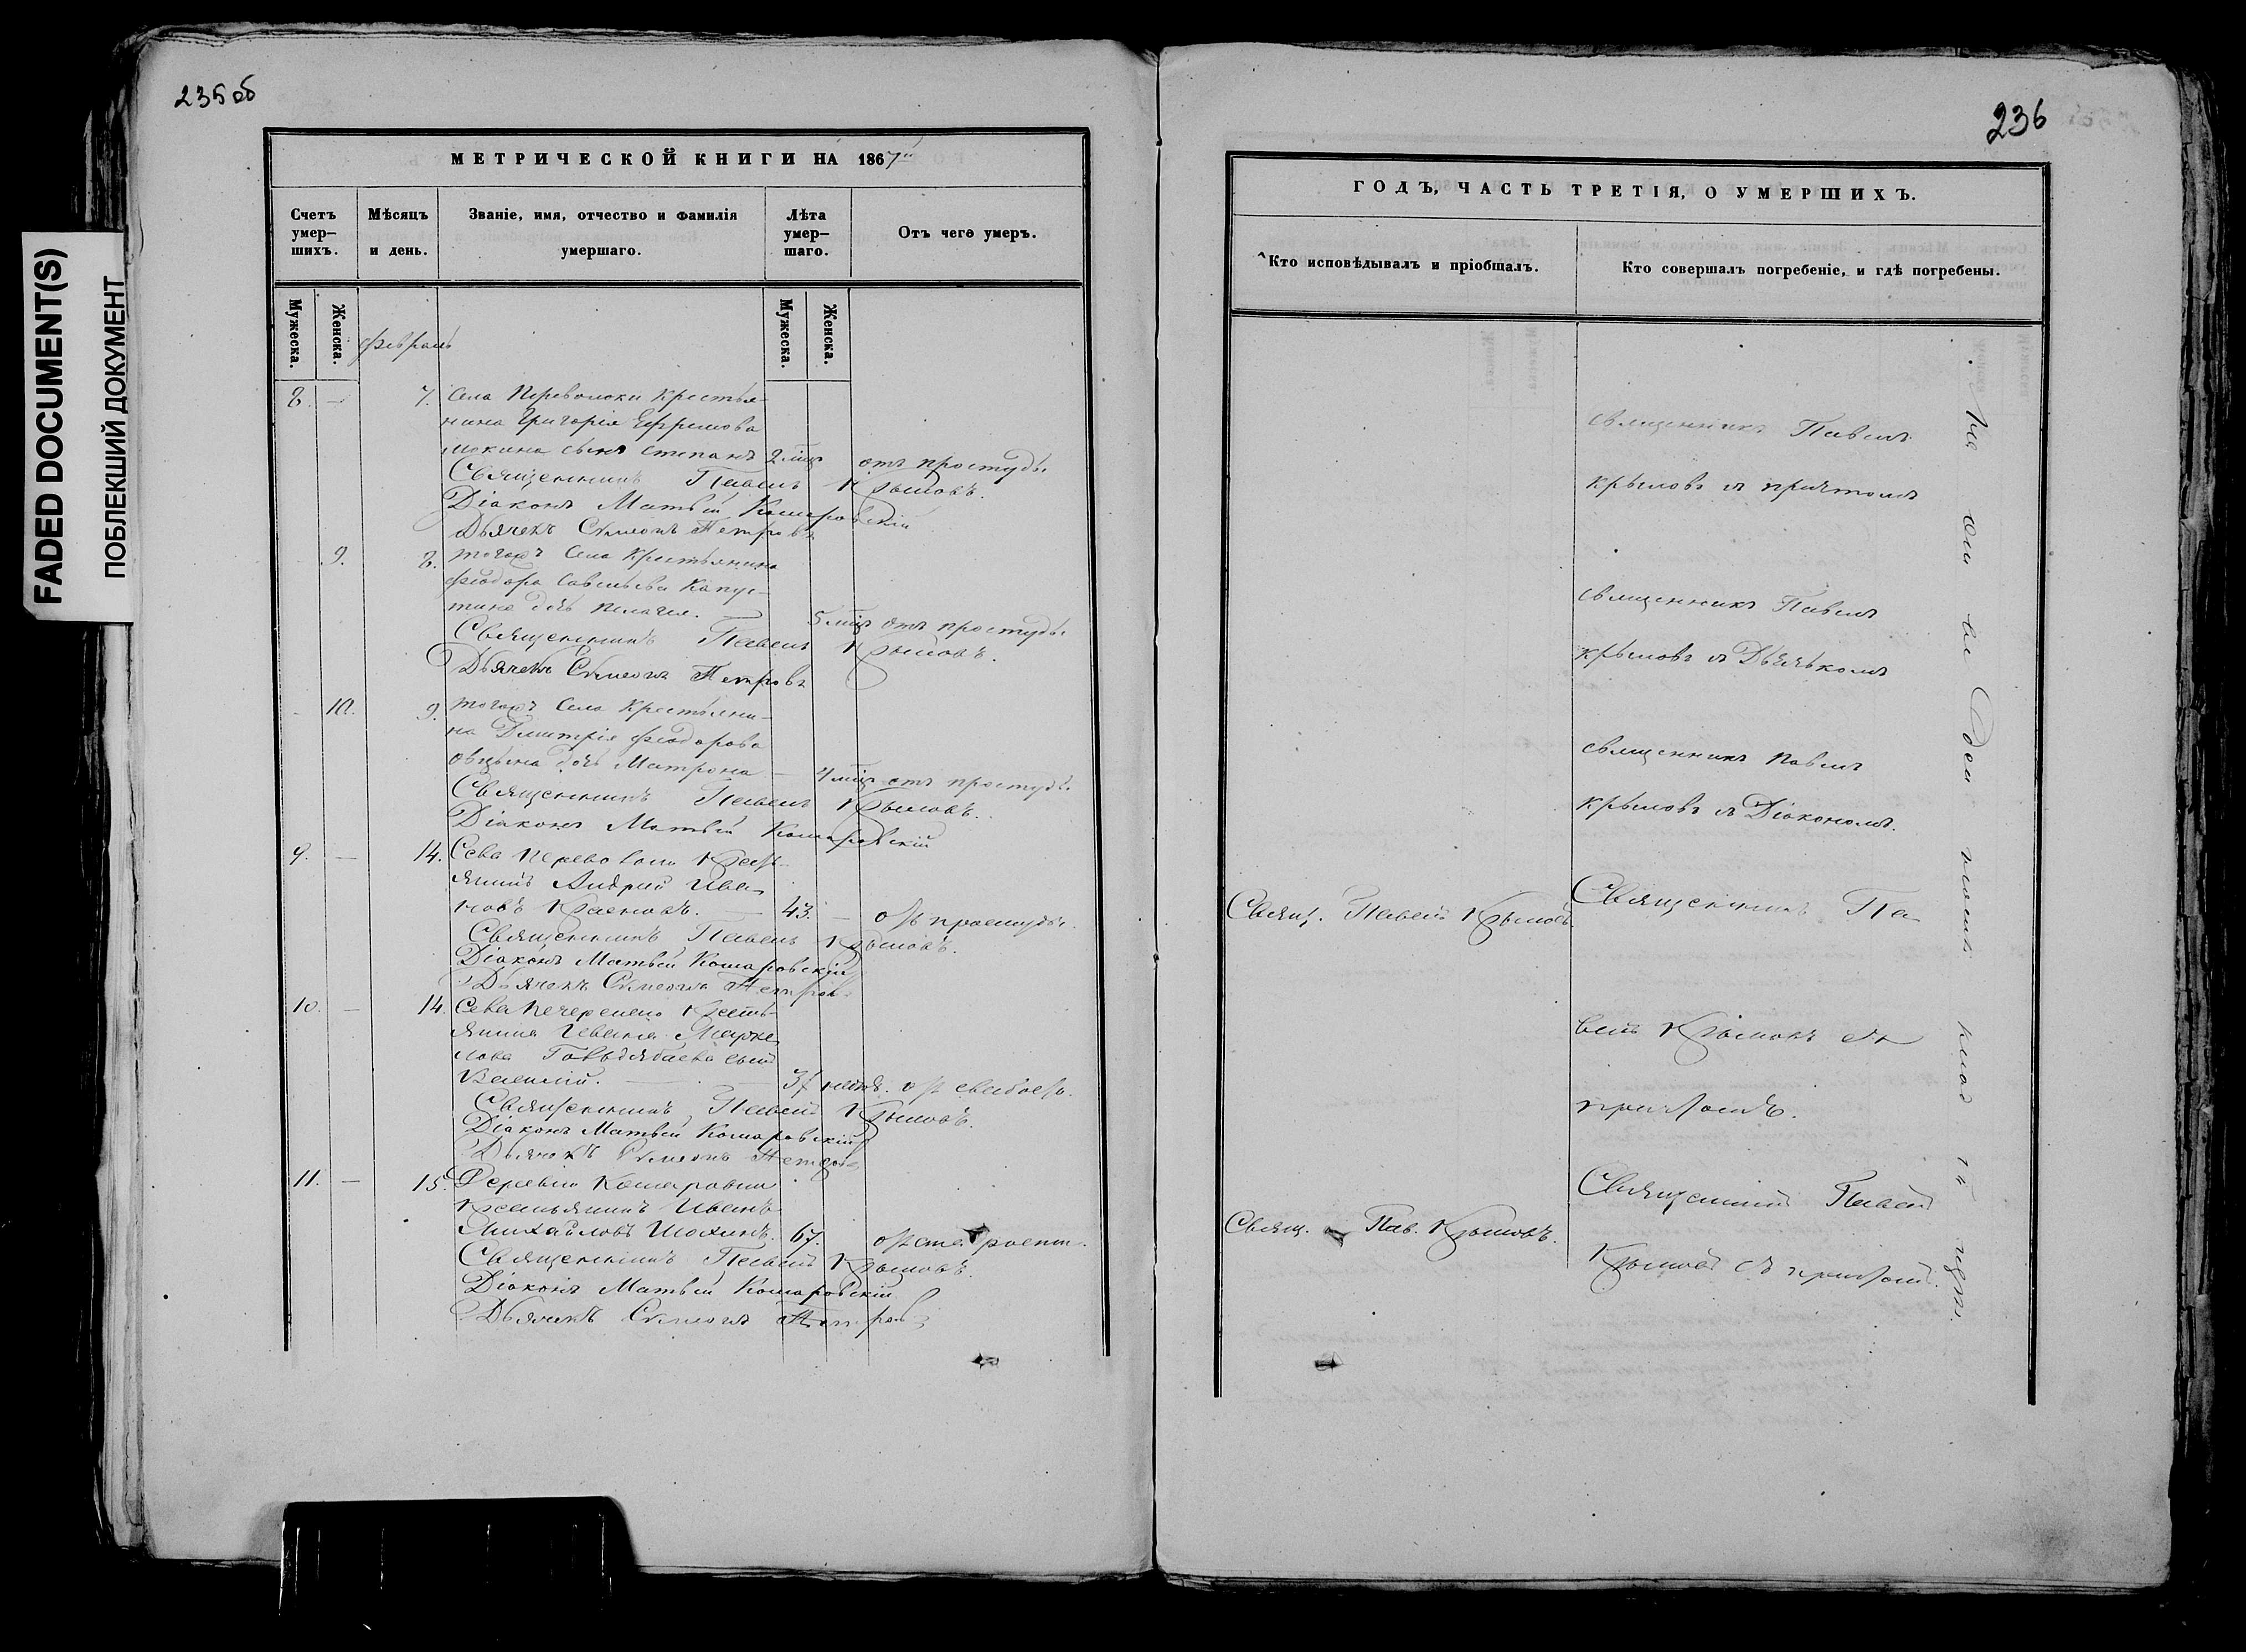 235 об
МЕТРИЧЕСКОЙ КНИГИ НА 1867й
Счетъ умер-шихъ.
Мѣсяцъ и день.
Званіе, имя, отчество и фамилія умершаго.
Лѣта умер-шаго.
Отъ чего умеръ.
Мужеска.
Женска.
Мужеска.
Женска.
Февраль
8. — 7. Села Переволоки крестья-
нина Григорія Ефремова
сынъ Степанъ 2 мѣц отъ простуды
Священникъ Павелъ Крыловъ.
Діаконъ Матвей Комаровскій
Дьячекъ Симеонъ Петровъ
9. 8. тогожъ Села Крестьянина
Феодора Савельева Капус-
тина дочь Пелагея. 5 мѣц отъ простуды
Священникъ Павелъ Крыловъ.
Дьячекъ Симеонъ Петровъ
10. 9. тогожъ Села Крестьяни-
на Димитрія Феодорова
дочь Матрона — 4 мѣц отъ простуды
Священникъ Павелъ Крыловъ.
Діаконъ Матвей Комаровскій
9. — 14. Села Переволоки Крест-
янинъ Андрей Ива-
новъ 43. — отъ простуды.
Священникъ Павелъ Крыловъ.
Діаконъ Матвей Комаровскій
Дьячекъ Симеонъ Петровъ
10. — 14. Села Печерскаго Кресть-
янина Ивана Марке-
лова сынъ
Василій. отъ слабости.
Священникъ Павелъ Крыловъ.
Діаконъ Матвей Комаровскій
Дьячекъ Симеонъ Петровъ
11. — 15. Деревни Комаровки
Крестьянинъ Иванъ
Михайловъ 67. отъ старости.
Священникъ Павелъ Крыловъ.
Діаконъ Матвей Комаровскій
Дьячекъ Симеонъ Петровъ
236
ГОДЪ, ЧАСТЬ ТРЕТІЯ, О УМЕРШИХЪ.
Кто исповѣдывалъ и пріобщалъ.
Кто совершалъ погребеніе, и гдѣ погребены.
священникъ Павелъ
Крыловъ съ причтомъ
священникъ Павелъ
Крыловъ съ Дьячькомъ
священникъ Павелъ
Крыловъ съ Діакономъ.
Свящ. Павелъ Крыловъ.
Священникъ Па-
велъ Крыловъ съ
причтомъ.
Свящ. Пав. Крыловъ.
Священникъ Павелъ
Крыловъ съ причтомъ.
FADED DOCUMENT(S)
ПОБЛЕКШИЙ ДОКУМЕНТ